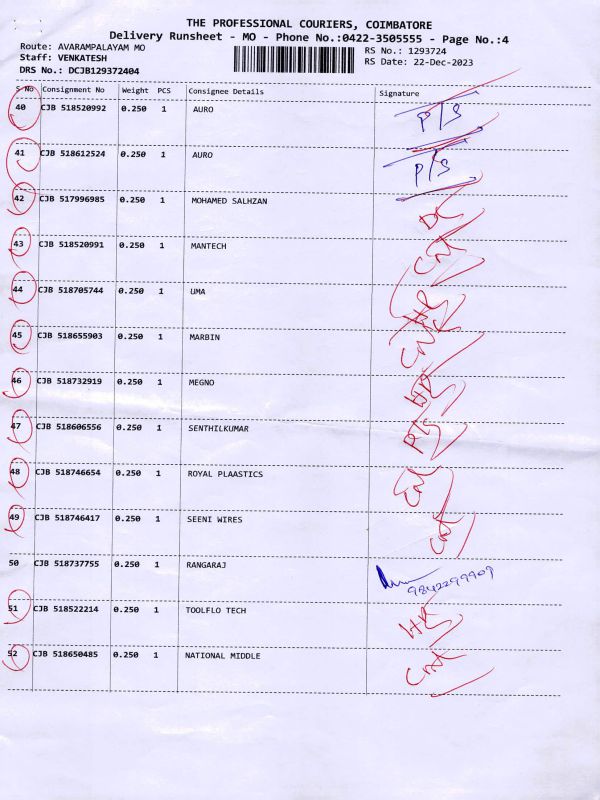 THE PROFESSIONAL COURIERS, COIMBATORE
Delivery Runsheet - MO - Phone No.:0422-3505555 - Page No.:4
Route: AVARAMPALAYAM MO RS No.: 1293724
Staff: VENKATESH RS Date: 22-Dec-2023
DRS No.: DCJB129372404
S No Consignment No Weight PCS Consignee Details Signature
40 CJB 518520992 0.250 1 AURO P/S
41 CJB 518612524 0.250 1 AURO P/S
42 CJB 517996985 0.250 1 MOHAMED SALHZAN DC
43 CJB 518520991 0.250 1 MANTECH
44 CJB 518705744 0.250 1 UMA HR
45 CJB 518655903 0.250 1 MARBIN
46 CJB 518732919 0.250 1 MEGNO HR
47 CJB 518606556 0.250 1 SENTHILKUMAR P/S
48 CJB 518746654 0.250 1 ROYAL PLAASTICS
49 CJB 518746417 0.250 1 SEENI WIRES
50 CJB 518737755 0.250 1 RANGARAJ 9842299909
51 CJB 518522214 0.250 1 TOOLFLO TECH HR
52 CJB 518650485 0.250 1 NATIONAL MIDDLE